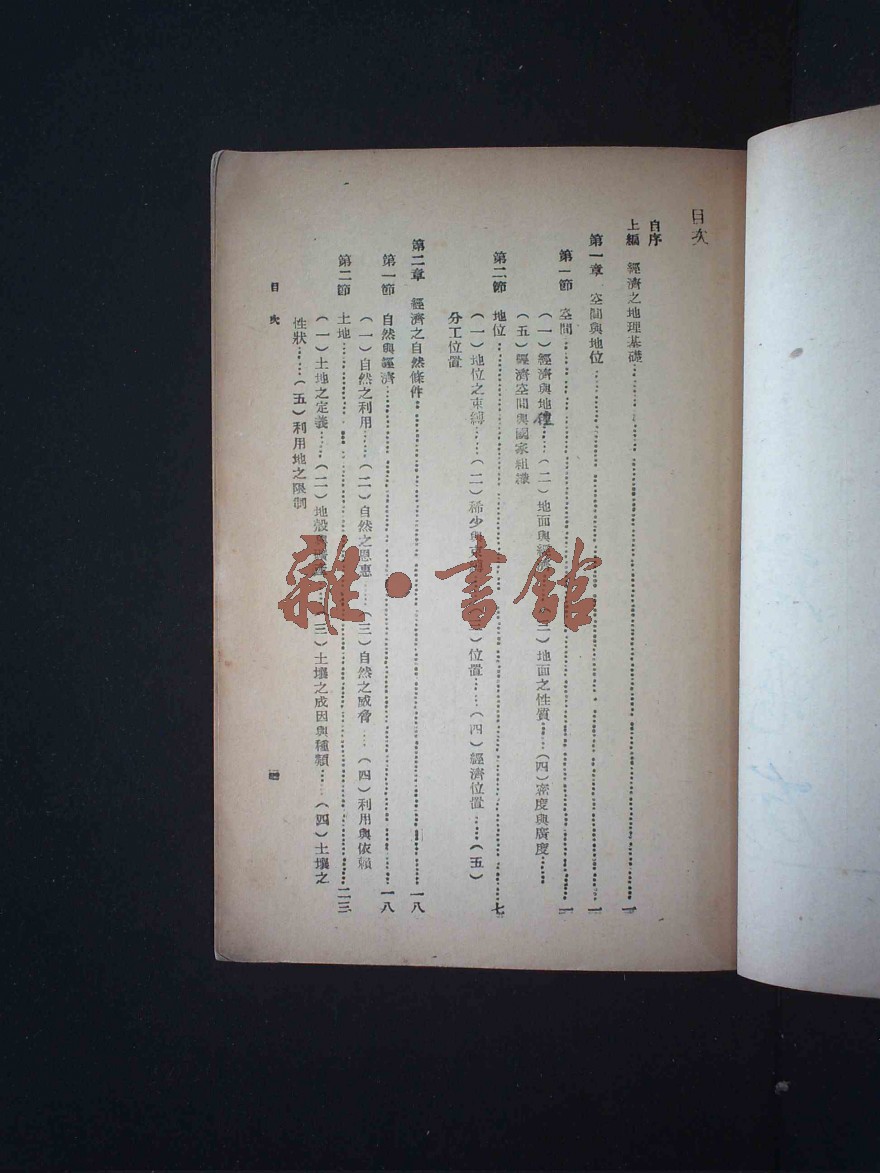 目次
自序
上編 經濟之地理基礎……一
第一章 空間與地位……一
第一節 空間……一
(一)經濟與地種……(二)地面與經濟……(三)地面之性質……(四)密度與廣度……
(五)經濟空間與國家組織
第二節 地位……七
(一)地位之束縛……(二)稀少與……位置……(四)經濟位置……(五)
分工位置
第二章 經濟之自然條件……一八
第一節 自然與經濟……一八
(一)自然之利用……(二)自然之恩惠……(三)自然之威脅……(四)利用與依賴
第二節 土地……二三
(一)土地之定義……(二)地殼與……(三)土壤之成因與種類……(四)土壤之
性狀……(五)利用地之限制
目次
一
雜·書館